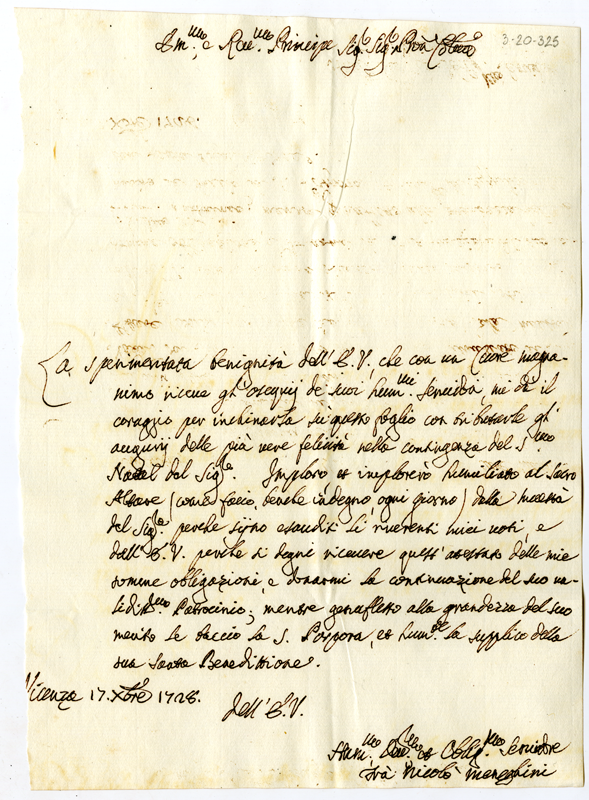 3-20-325
Em.mo, e Rev.mo Principe Sig.r Sig.r Pron Col.mo
La sperimentata benignità dell' E.V. che con un Cuore magna-
nimo riceve gl' ossequij de suoi hum.mi Servidori, mi dà il
coraggio per inchinarla sù questo foglio con tributarle gl'
augurij delle più vere felicità nella contingenza del S.mo
Natal del Sig.re. Imploro, et implorerò humiliato al Sacro
Altare (come faccio, benche indegno, ogni giorno) dalla
del Sig.re perche sijno esauditi li riverenti miei voti, e
dall' E.V. perche si degni ricevere quest' attestato delle mie
somme obligazioni, e donarmi la continuazione del suo va-
lidiss.mo Patrocinio; mentre genuflesso alla grandezza del suo
merito le baccio la S. Porpora, et hum.te la supplico della
sua Santa Benedittione.
Vicenza 17. Xbre 1728.
Dell' E.V.
Hum.mo Dev.mo et Oblig.mo Servidore
Frà Nicolò Meneghini